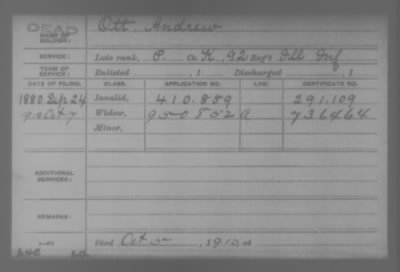 DEAD
NAME OF SOLDIER: Ott, Andrew
SERVICE: Late rank, P. Co. K, 92 Reg't Ill. Inf
TERM OF SERVICE: Enlisted , 1 Discharged , 1
DATE OF FILING. CLASS. APPLICATION NO. LAW. CERTIFICATE NO.
1880 Sep 24 Invalid, 410.859 291.109
910 Oct 17 Widow, 950852 a 736464
Minor,
ADDITIONAL SERVICES:
REMARKS:
Died Oct 5 , 1910, at